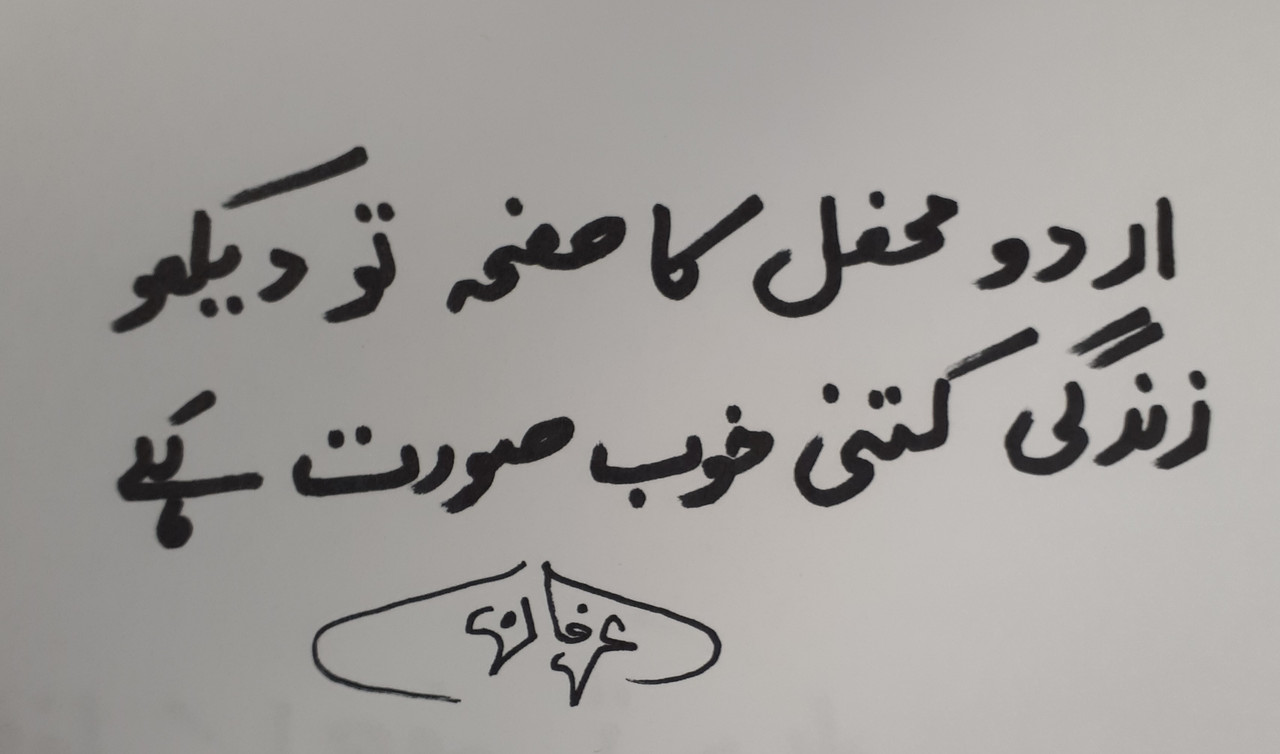 اردو محفل کا صفحہ تو دیکھو
زندگی کتنی خوب صورت ہے
عرفان